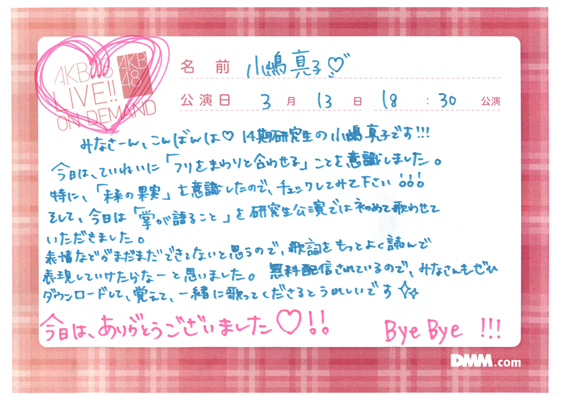 AKB48
LIVE!!
ON DEMAND
AKB
48
名前 小嶋真子♡
公演日 3月13日 18:30 公演
みなさーん、こんばんは♡ 14期研究生の小嶋真子です!!!
今日は、ていねいに「フリをまわりと合わせる」ことを意識しました。
特に、「未来の果実」を意識したので、チェックしてみて下さい!!!
そして、今日は「掌が語ること」を研究生公演では初めて歌わせて
いただきました。
表情などがまだまだできてないと思うので、歌詞をもっとよく読んで
表現していけたらなーと思いました。無料配信されているので、みなさんもぜひ
ダウンロードして、覚えて、一緒に歌ってくださるとうれしいです
今日は、ありがとうございました♡!!
Bye Bye !!!
DMM.com